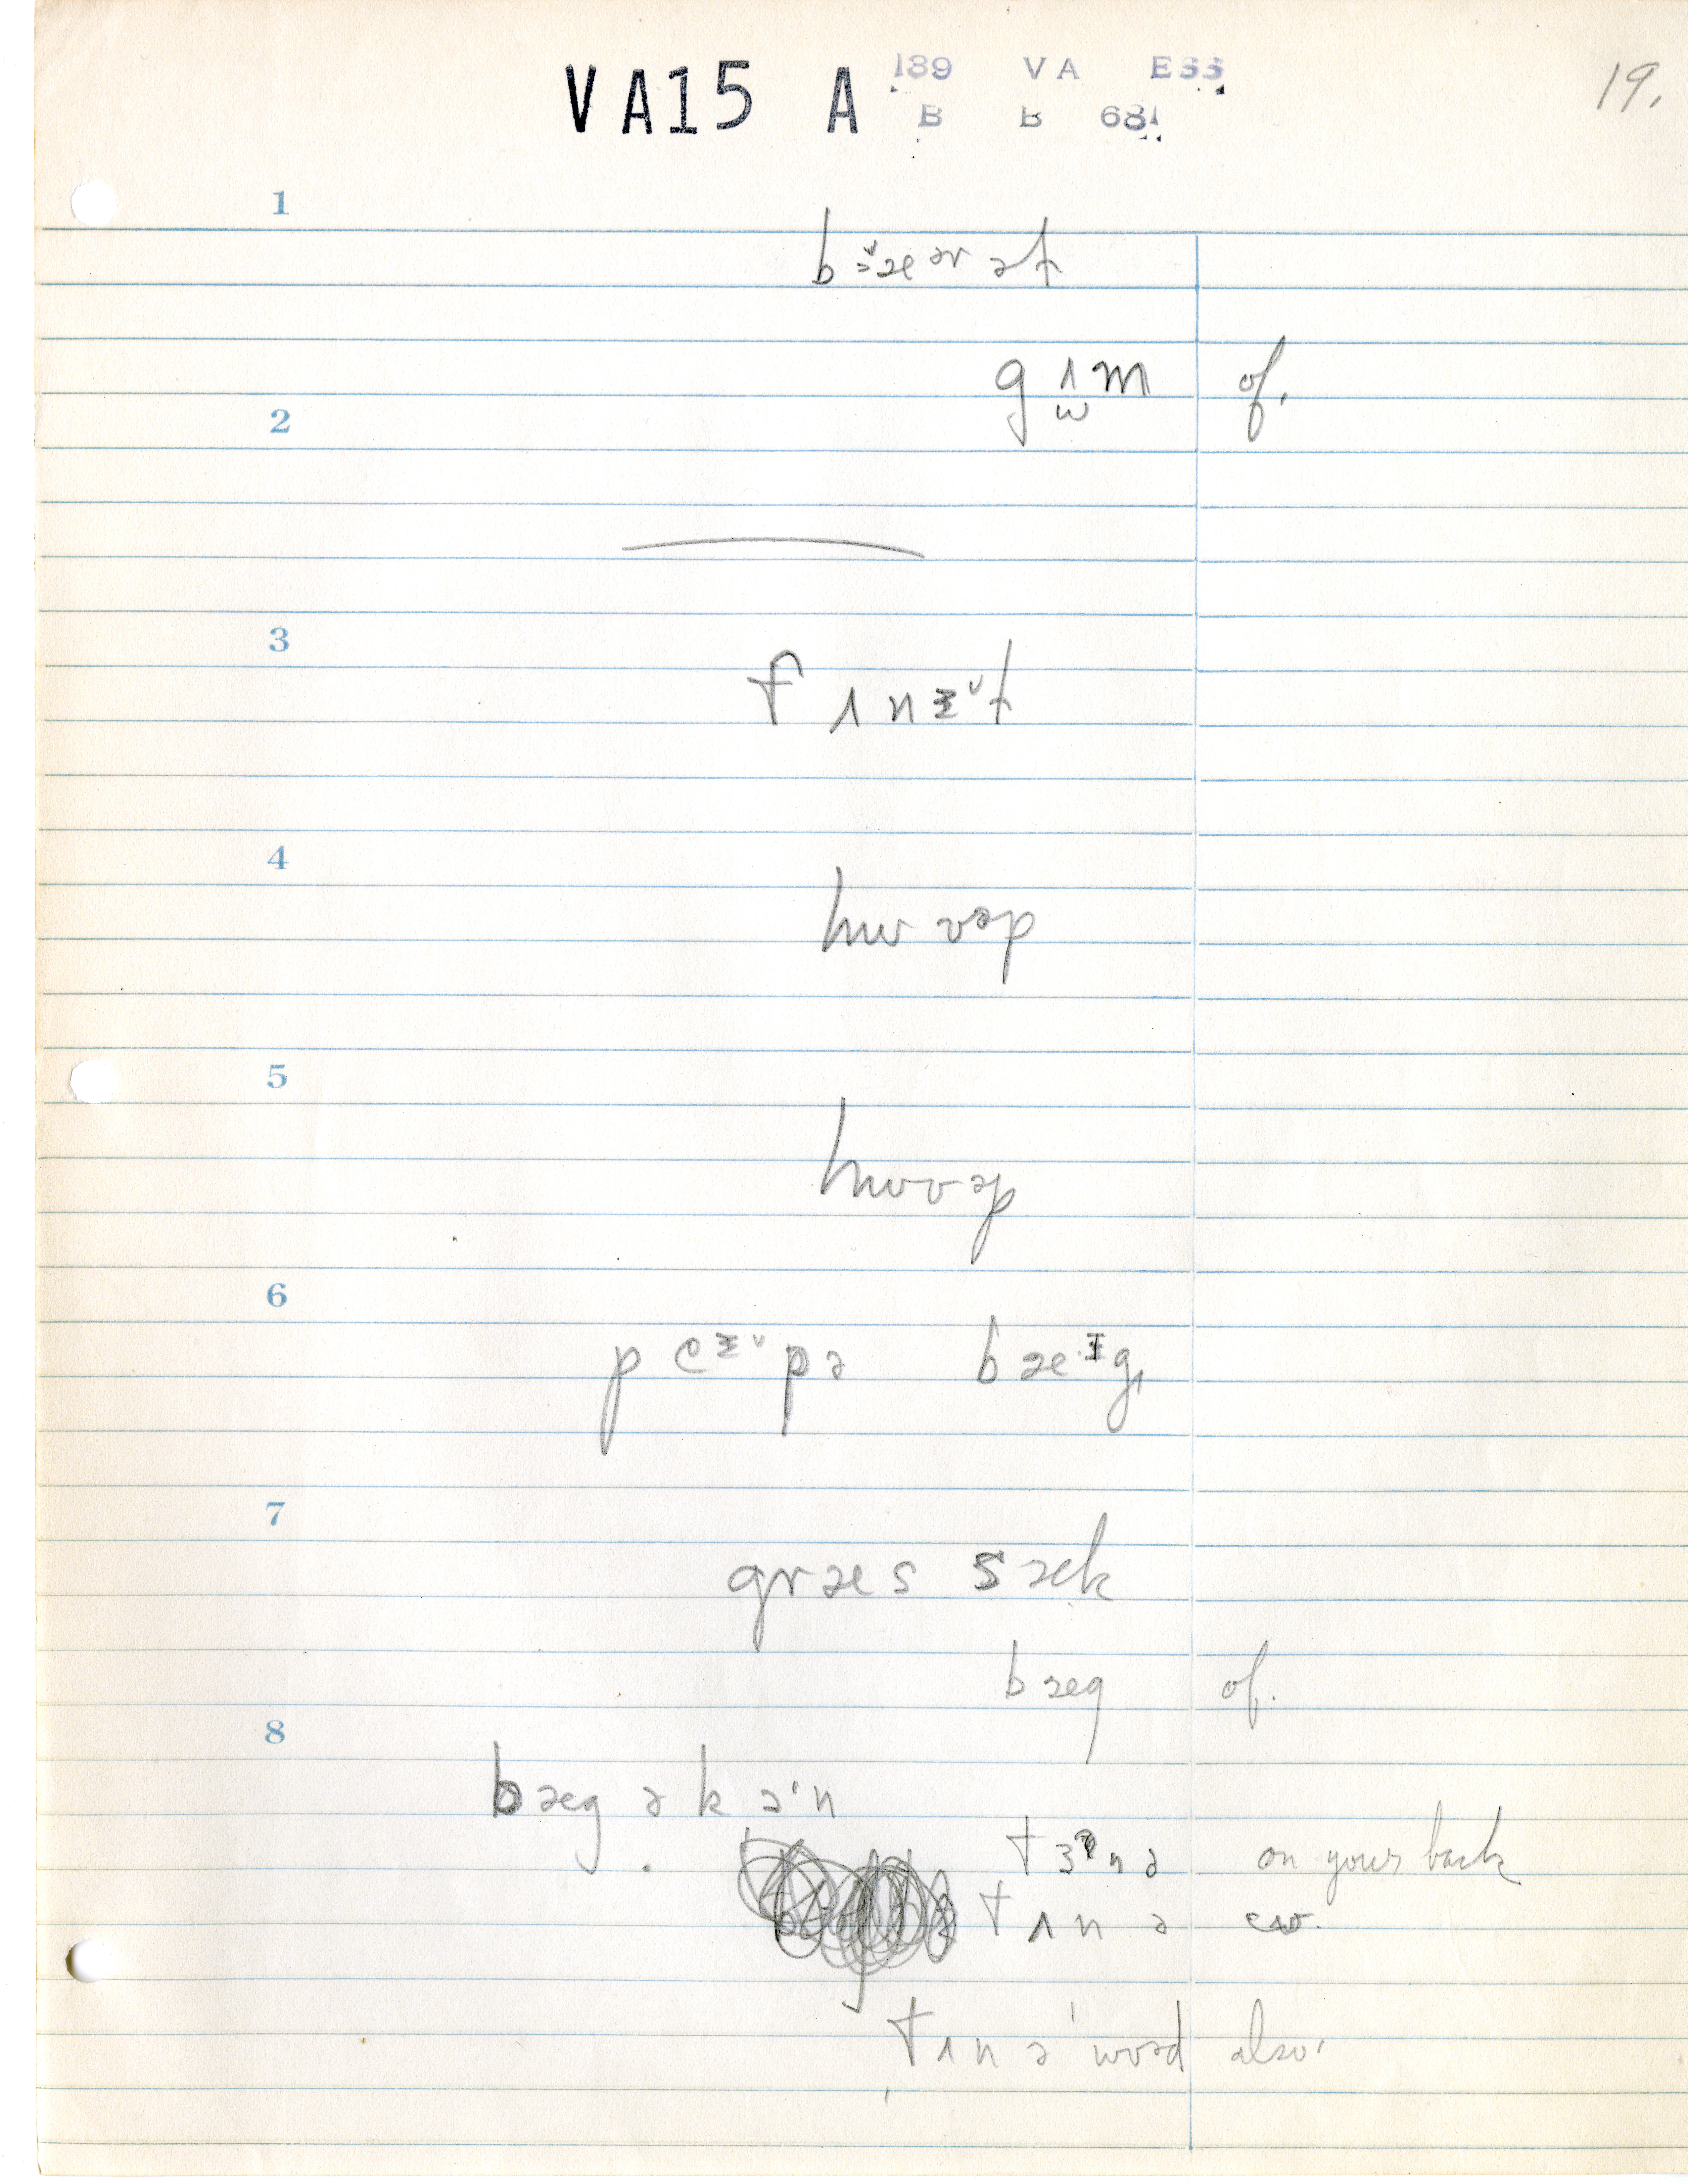 VA15 A 189 VA ESS 19.
B B 681
1
b æ ər ət
g ɪ m of.
2
3
f ɪ n ɪ t
4
hw ʊəp
5
hwʊəp
6
p e ɪ pə b æ ɪ g
7
græs sæk
bæg of.
8
bæg ə k ɔ'n
t ɜ n ə on your back
t ɪ n ə cw.
t ɪ n ə word also